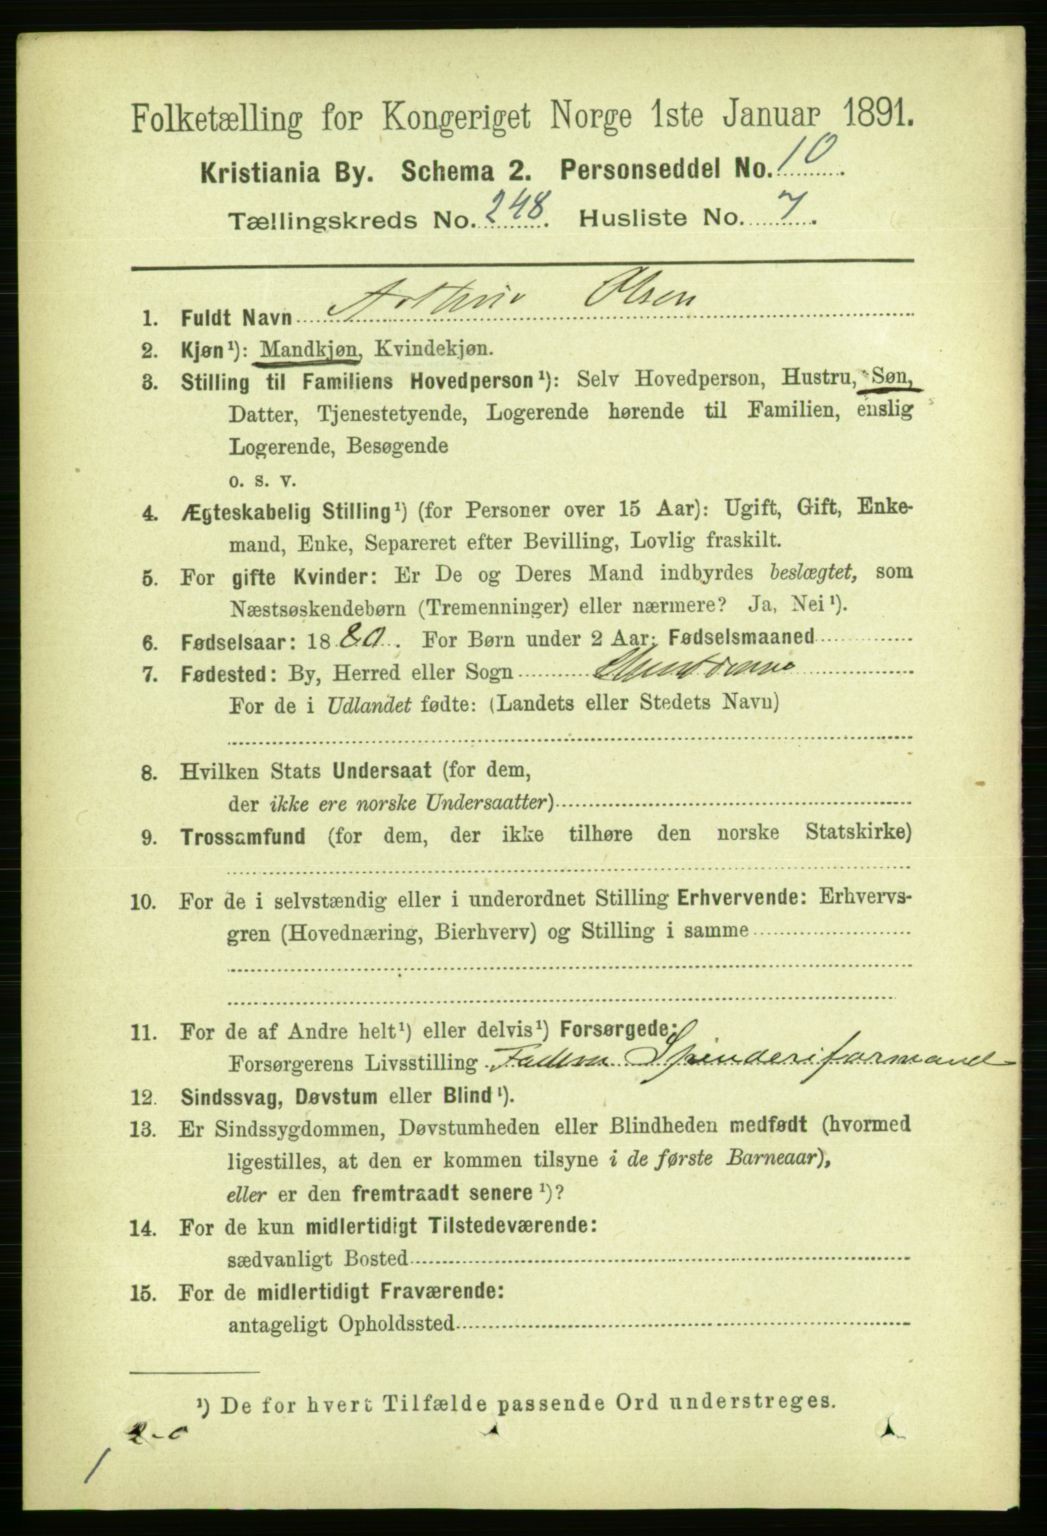 Folketælling for Kongeriget Norge 1ste Januar 1891.
Kristiania By. Schema 2. Personseddel No. 10.
Tællingskreds No. 248. Husliste No. 7.
1. Fuldt Navn Arthur Olsen
2. Kjøn¹): Mandkjøn, Kvindekjøn.
3. Stilling til Familiens Hovedperson¹): Selv Hovedperson, Hustru, Søn,
Datter, Tjenestetyende, Logerende hørende til Familien, enslig
Logerende, Besøgende
o. s. v.
4. Ægteskabelig Stilling¹) (for Personer over 15 Aar): Ugift, Gift, Enke-
mand, Enke, Separeret efter Bevilling, Lovlig fraskilt.
5. For gifte Kvinder: Er De og Deres Mand indbyrdes beslægtet, som
Næstsøskendebørn (Tremenninger) eller nærmere? Ja, Nei¹).
6. Fødselsaar: 1880. For Børn under 2 Aar: Fødselsmaaned
7. Fødested: By, Herred eller Sogn
For de i Udlandet fødte: (Landets eller Stedets Navn)
8. Hvilken Stats Undersaat (for dem,
der ikke ere norske Undersaatter)
9. Trossamfund (for dem, der ikke tilhøre den norske Statskirke)
10. For de i selvstændig eller i underordnet Stilling Erhvervende: Erhvervs-
gren (Hovednæring, Bierhverv) og Stilling i samme
11. For de af Andre helt¹) eller delvis¹) Forsørgede:
Forsørgerens Livsstilling Faderen Spinderiformand
12. Sindssvag, Døvstum eller Blind¹).
13. Er Sindssygdommen, Døvstumheden eller Blindheden medfødt (hvormed
ligestilles, at den er kommen tilsyne i de første Barneaar),
eller er den fremtraadt senere¹)?
14. For de kun midlertidigt Tilstedeværende:
sædvanligt Bosted
15. For de midlertidigt Fraværende:
antageligt Opholdssted
¹) De for hvert Tilfælde passende Ord understreges.
2-0
1